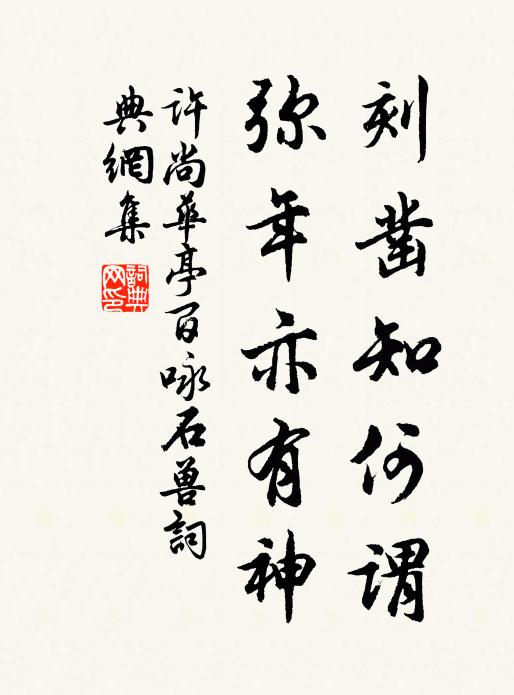 刻凿知何谓
弥年亦有神
许尚华亭百咏石兽词
典網集
詞典网印